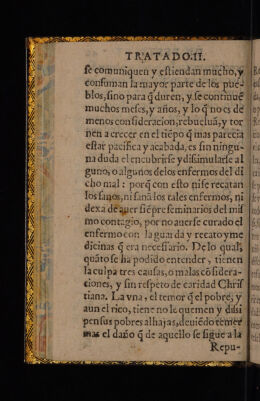 TRATADO.II.
se comuniquen y estiendan mucho, y
consuman la mayor parte de los pue-
blos, sino para q̃ duren, y se continuẽ
muchos meses, y años, y lo q̃ no es de
menos consideracion, rebueluã, y tor
nen a crecer en el tiẽpo q̃ mas parecia
estar pacifica y acabada, es sin ningu-
na duda el encubrirse y dissimularse al
guno, o algunos de los enfermos del di
cho mal: porq̃ con esto ni se recatan
los sanos, ni sanã los tales enfermos, ni
dexa de auer siẽpre seminarios del mis
mo contagio, por no auerse curado el
enfermo con la guarda y recato y me
dicinas q̃ era necessario. De lo qual,
quãto se ha podido entender, tienen
la culpa tres causas, o malas cõsidera-
ciones, y sin respeto de caridad Chris
tiana. La vna, el temor q̃ el pobre, y
aun el rico, tiene no le quemen y dissi
pen sus pobres alhajas, deuiẽdo temer
mas el daño q̃ de aquello se sigue a la
Repu-